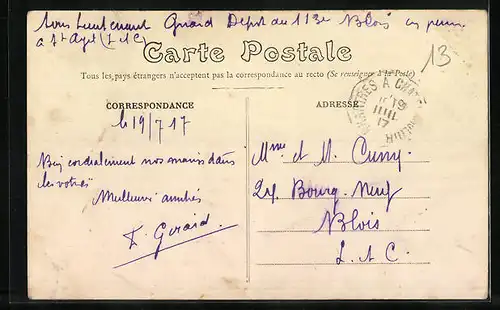 Sous Lieutenant Girard Dépôt du 113e Blois en perm.
à St Agil (L et C)
13
Carte Postale
Tous les pays étrangers n'acceptent pas la correspondance au recto (Se renseigner à la Poste)
CORRESPONDANCE
ADRESSE
le 19/7 17
Bien cordialement nos mains dans
les vôtres
Meilleures amitiés
F. Girard
Mme et M. Cuny
24 Bourg-Neuf
Blois
L. & C.